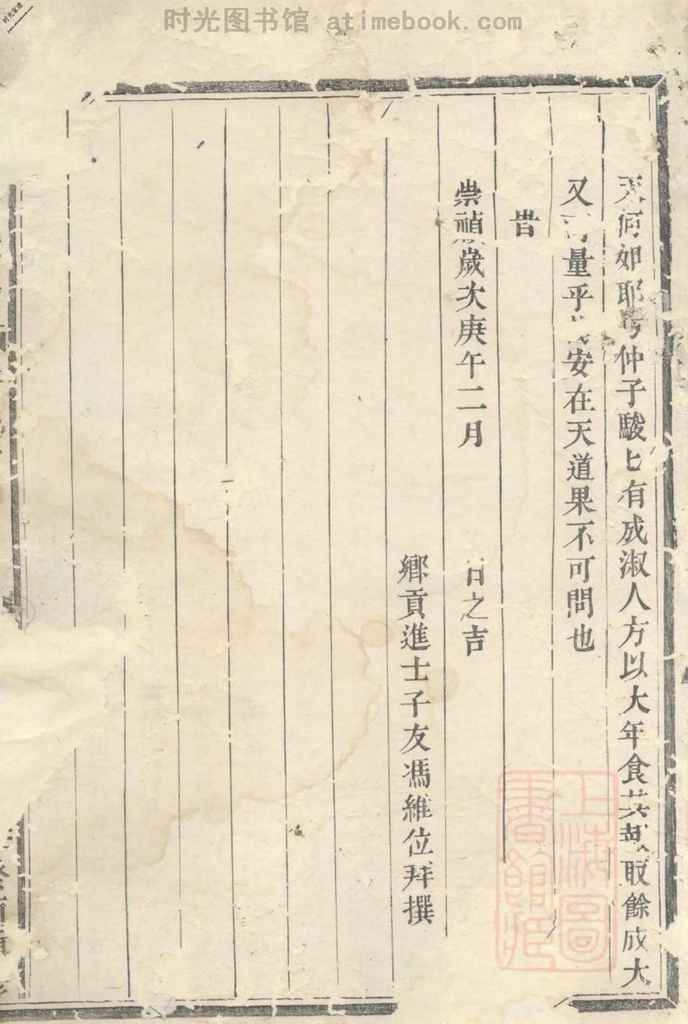 时光图书馆 atimebook.com
天何如耶 仲子駿 有成淑人方以大年食其 取餘成大
又 量乎 安在天道果不可問也
昔
崇禎歲次庚午二月 日之吉
鄉貢進士子友馮維位拜撰
上海圖書館藏